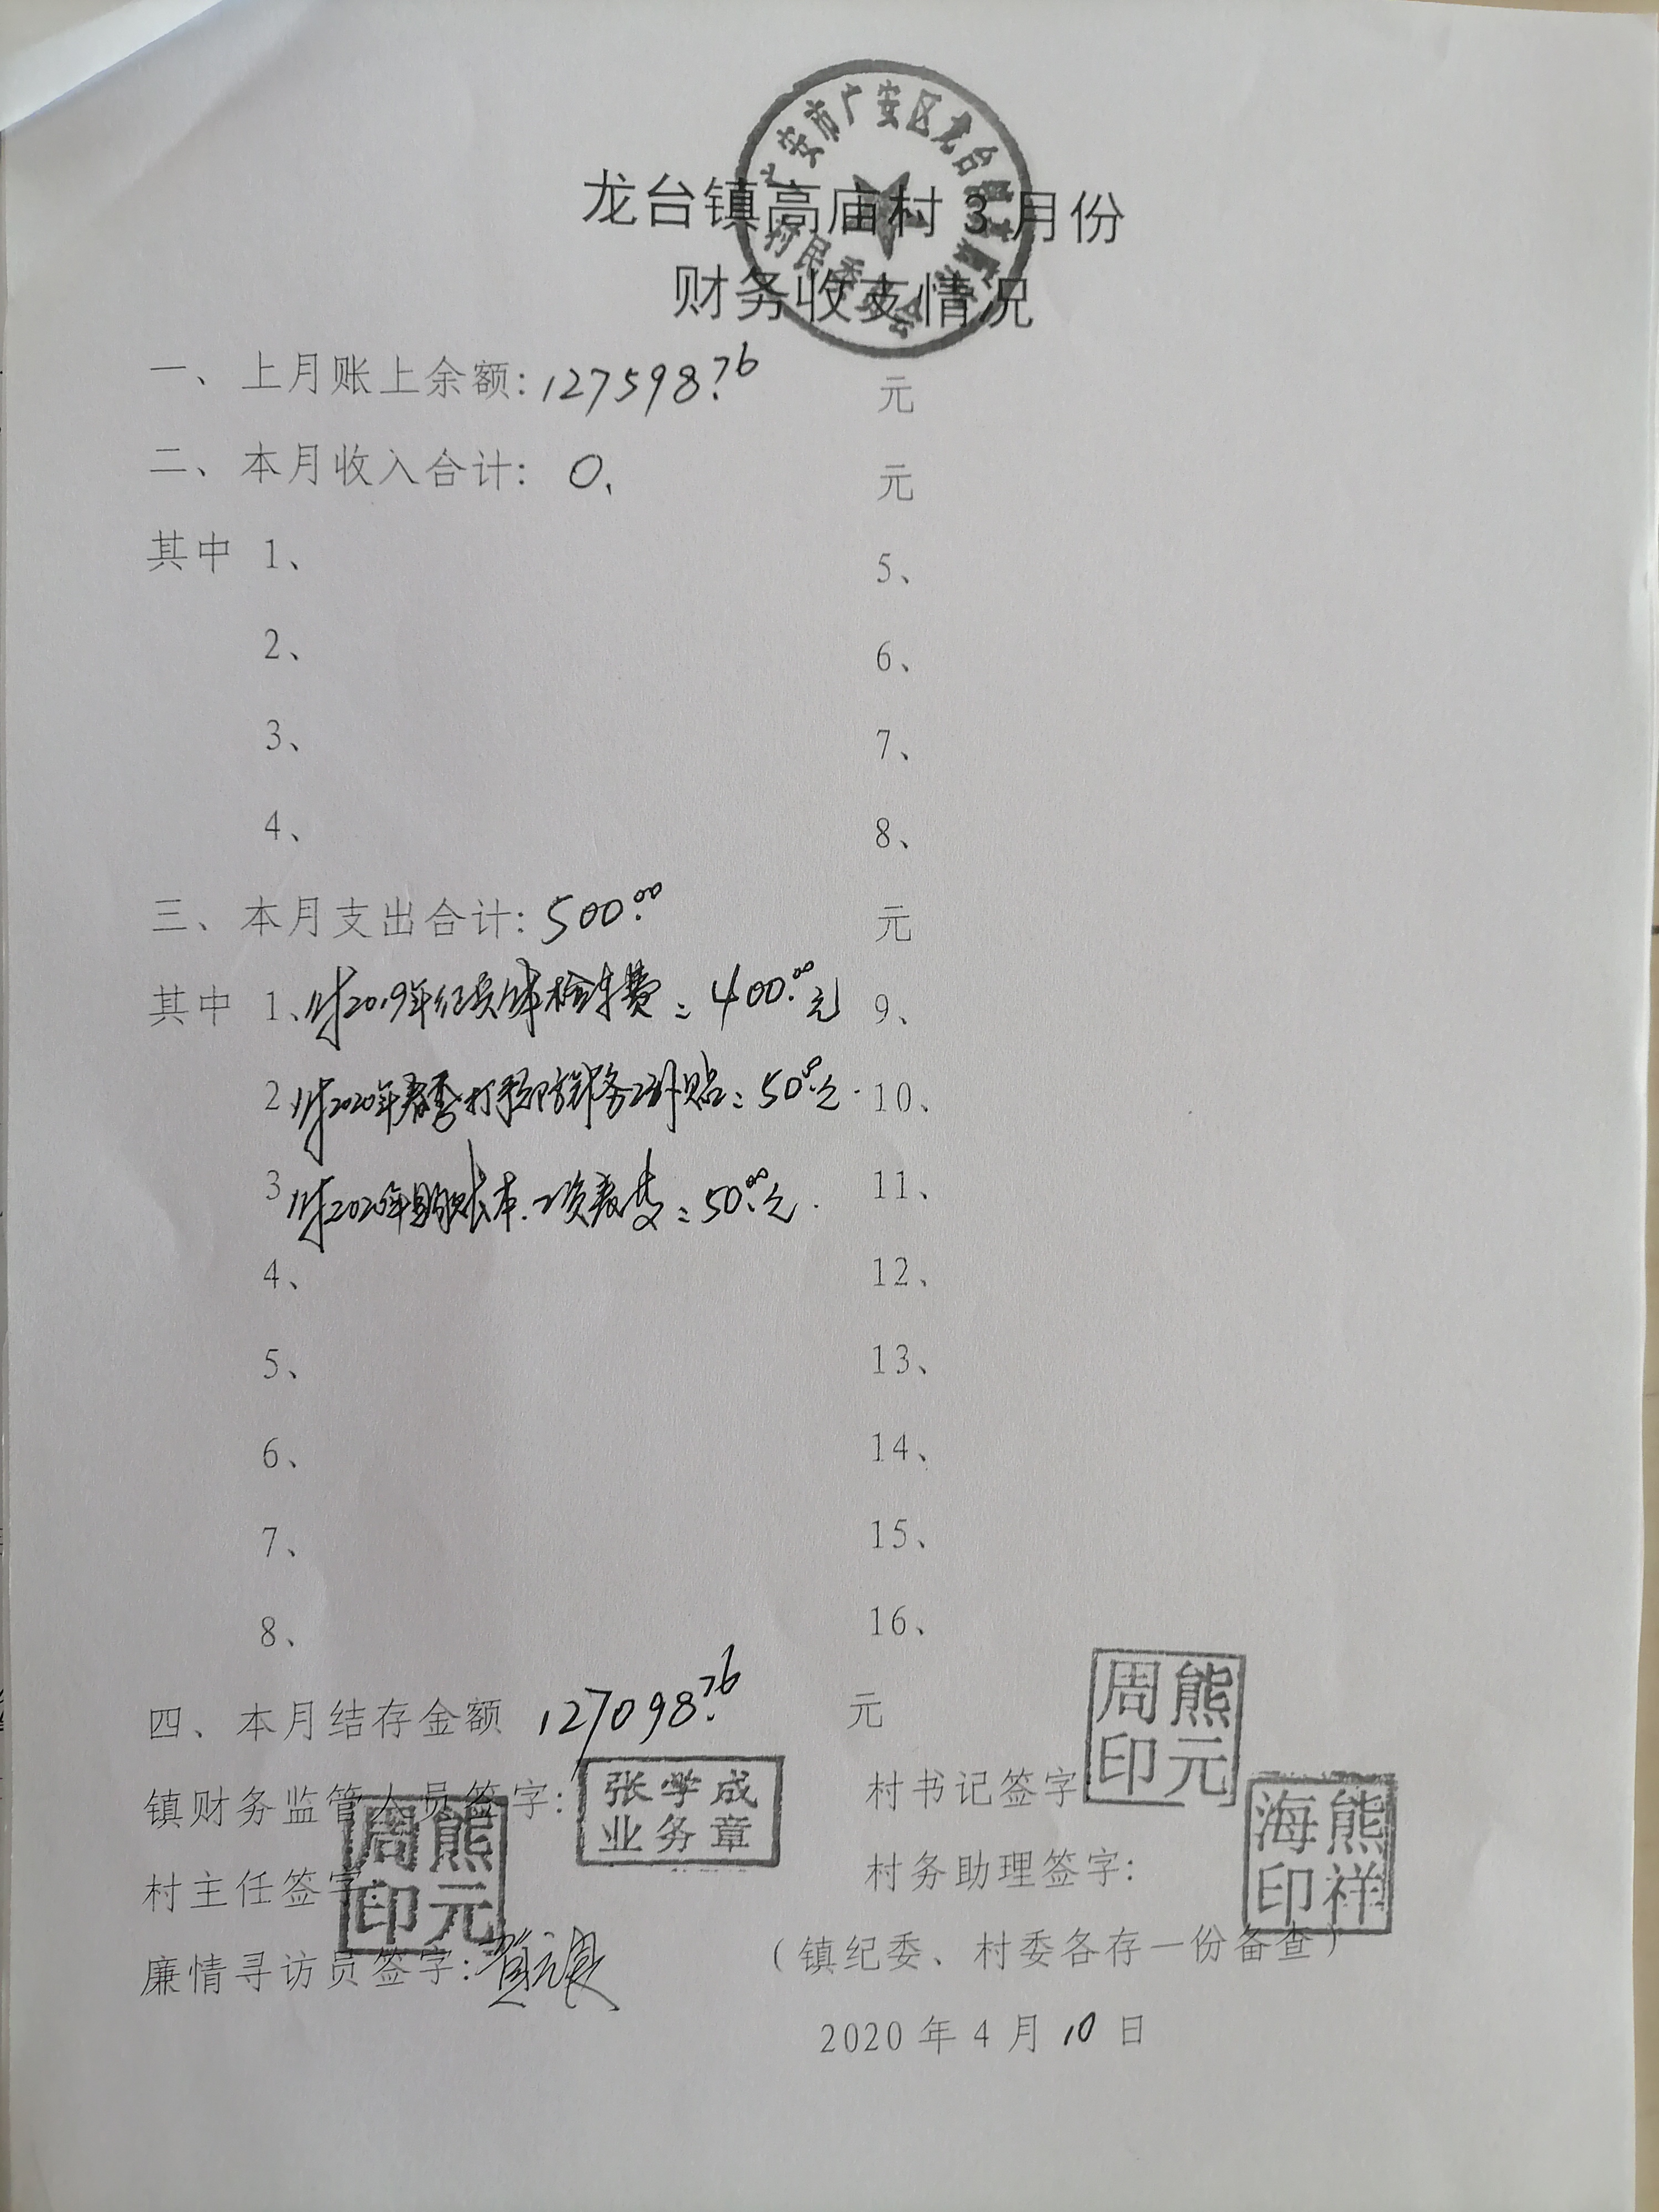 龙台镇高庙村 3 月份
财务收支情况
一、上月账上余额: 127598.76 元
二、本月收入合计: 0. 元
其中 1、 5、
2、 6、
3、 7、
4、 8、
三、本月支出合计: 500.00 元
其中 1、付2019年 体检车费: 400.00元 9、
2 付2020年春季打预防 务工补贴: 50.00元. 10、
3 付2020年 账本. 50.00元. 11、
4、 12、
5、 13、
6、 14、
7、 15、
8、 16、
四、本月结存金额 127098.76 元
镇财务监管人员签字: 张学成 业务章 村书记签字 熊元周印
村主任签字: 熊元周印 村务助理签字: 熊祥海印
廉情寻访员签字: (镇纪委、村委各存一份备查)
2020 年 4 月 10 日